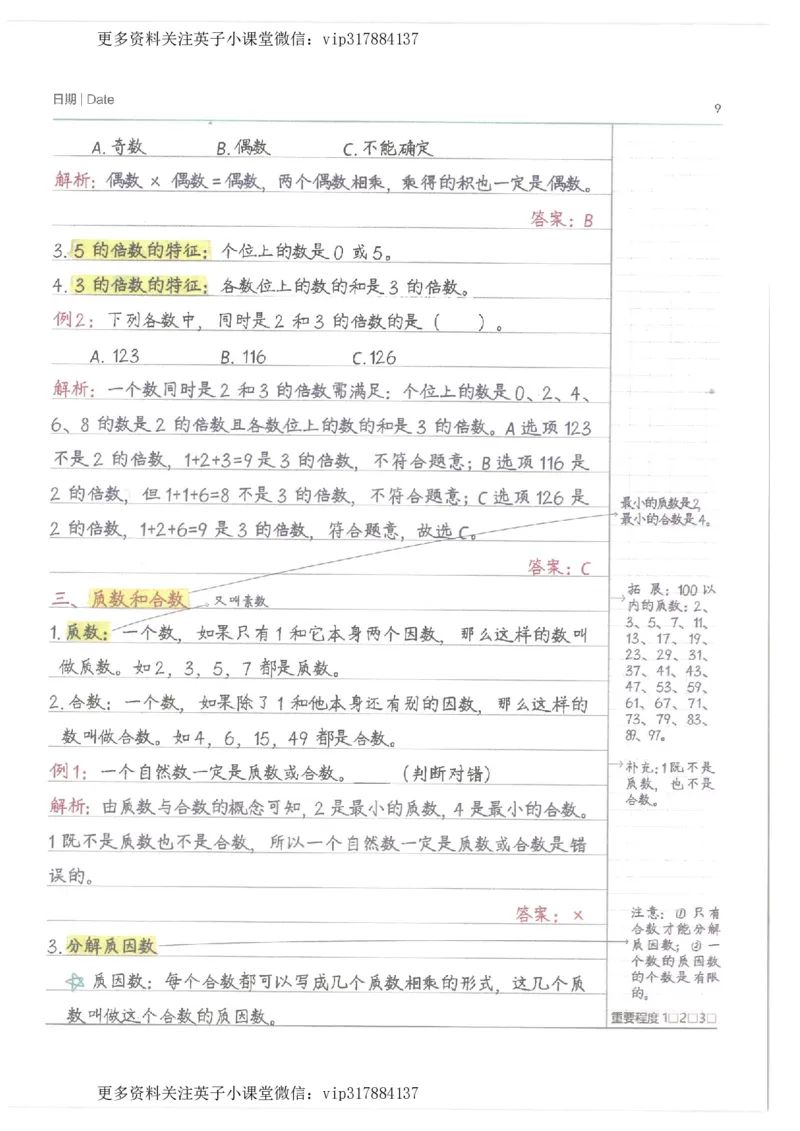 更多资料关注英子小课堂微信：vip317884137
日期 | Date
9
A. 奇数 B. 偶数 C. 不能确定
解析：偶数 × 偶数 = 偶数，两个偶数相乘，乘得的积也一定是偶数。
答案：B
3. 5 的倍数的特征：个位上的数是 0 或 5。
4. 3 的倍数的特征：各数位上的数的和是 3 的倍数。
例2：下列各数中，同时是 2 和 3 的倍数的是（ ）。
A. 123 B. 116 C. 126
解析：一个数同时是 2 和 3 的倍数需满足：个位上的数是 0、2、4、
6、8 的数是 2 的倍数且各数位上的数的和是 3 的倍数。A 选项 123
不是 2 的倍数，1+2+3=9 是 3 的倍数，不符合题意；B 选项 116 是
2 的倍数，但 1+1+6=8 不是 3 的倍数，不符合题意；C 选项 126 是
2 的倍数，1+2+6=9 是 3 的倍数，符合题意，故选 C。
答案：C
三、质数和合数 又叫素数
1. 质数：一个数，如果只有 1 和它本身两个因数，那么这样的数叫
做质数。如 2，3，5，7 都是质数。
2. 合数：一个数，如果除了 1 和他本身还有别的因数，那么这样的
数叫做合数。如 4，6，15，49 都是合数。
例1：一个自然数一定是质数或合数。____（判断对错）
解析：由质数与合数的概念可知，2 是最小的质数，4 是最小的合数。
1 既不是质数也不是合数，所以一个自然数一定是质数或合数是错
误的。
答案：×
3. 分解质因数
☆ 质因数：每个合数都可以写成几个质数相乘的形式，这几个质
数叫做这个合数的质因数。
最小的质数是2，
最小的合数是4。
拓展：100 以
内的质数：2、
3、5、7、11、
13、17、19、
23、29、31、
37、41、43、
47、53、59、
61、67、71、
73、79、83、
89、97。
补充：1既不是
质数，也不是
合数。
注意：①只有
合数才能分解
质因数；②一
个数的质因数
的个数是有限
的。
重要程度 1□2□3□
更多资料关注英子小课堂微信：vip317884137